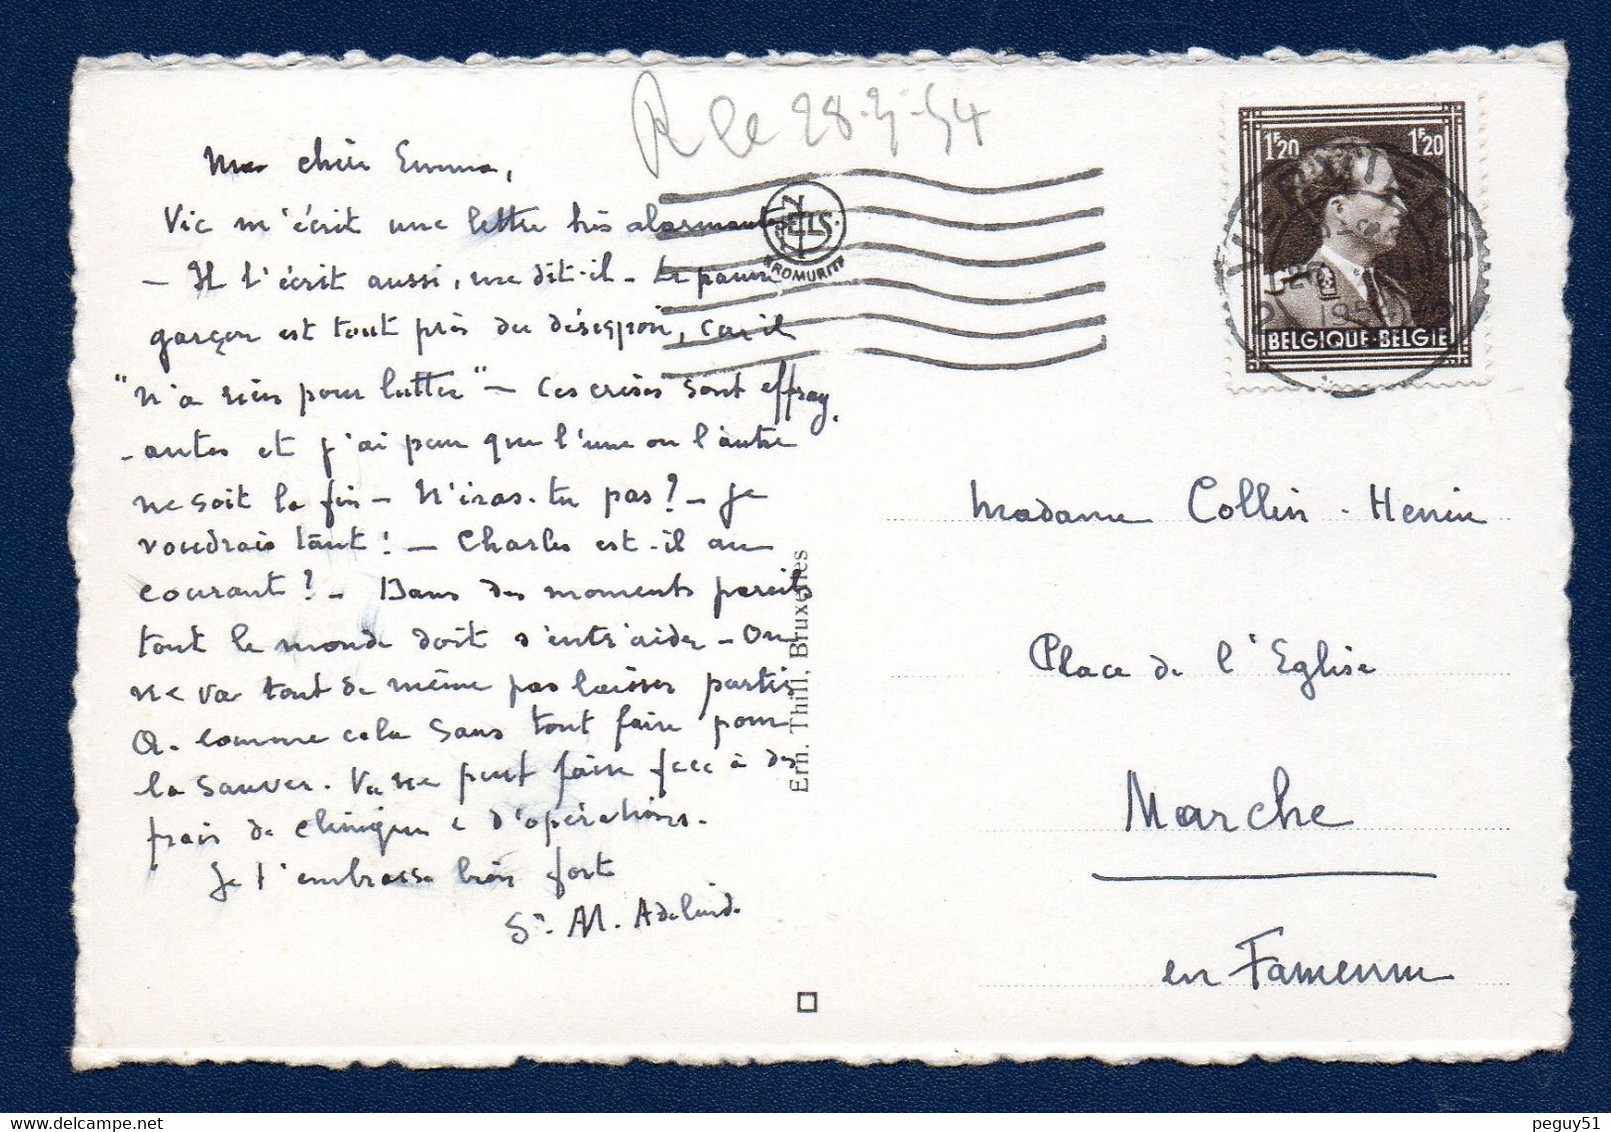 R le 28-3-54
Ma chère Emma,
Vic m'écrit une lettre très alarmante
— Il t'écrit aussi, me dit-il — Le pauvre
garçon est tout près du désespoir, car il
"n'a rien pour lutter" — Ces crises sont effray
-antes et j'ai peur que l'une ou l'autre
ne soit la fin — N'iras-tu pas? — Je
voudrais tant! — Charles est-il au
courant? — Dans des moments pareils
tout le monde doit s'entr'aider — On
ne va tout de même pas laisser partir
A. comme cela sans tout faire pour
la sauver. V. ne peut faire face à des
frais de clinique & d'opérations.
Je t'embrasse bien fort
Sr. M. Adelaïde
NELS
BROMURITE
Ern. Thill, Bruxelles
1F20 1F20
BELGIQUE·BELGIE
VERVIERS
1954
Madame Collin - Henin
Place de l'Eglise
Marche
en Famenne
peguy51